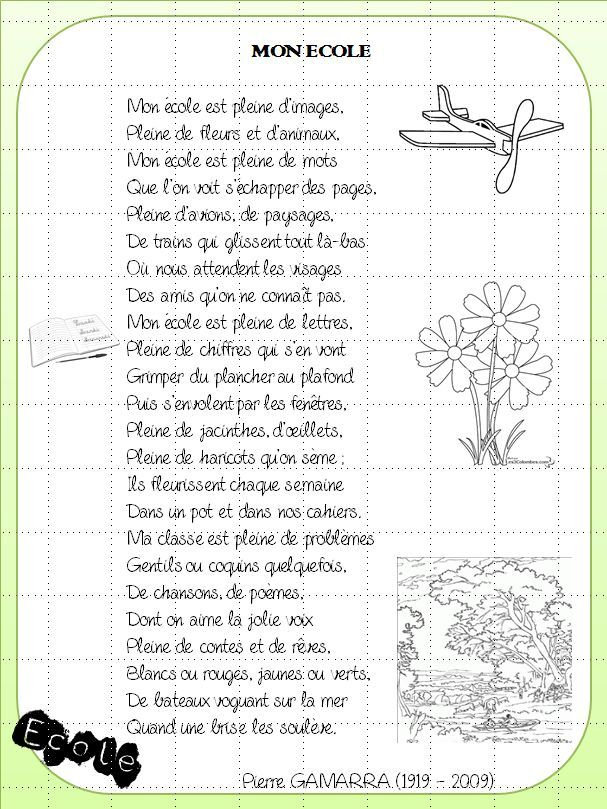 MON ECOLE
Mon école est pleine d'images,
Pleine de fleurs et d'animaux,
Mon école est pleine de mots
Que l'on voit s'échapper des pages,
Pleine d'avions, de paysages,
De trains qui glissent tout là-bas
Où nous attendent les visages
Des amis qu'on ne connaît pas.
Mon école est pleine de lettres,
Pleine de chiffres qui s'en vont
Grimper du plancher au plafond
Puis s'envolent par les fenêtres,
Pleine de jacinthes, d'œillets,
Pleine de haricots qu'on sème ;
Ils fleurissent chaque semaine
Dans un pot et dans nos cahiers.
Ma classe est pleine de problèmes
Gentils ou coquins quelquefois,
De chansons, de poèmes,
Dont on aime la jolie voix
Pleine de contes et de rêves,
Blancs ou rouges, jaunes ou verts,
De bateaux voguant sur la mer
Quand une brise les soulève.
Ecole
Pierre GAMARRA (1919 - 2009)